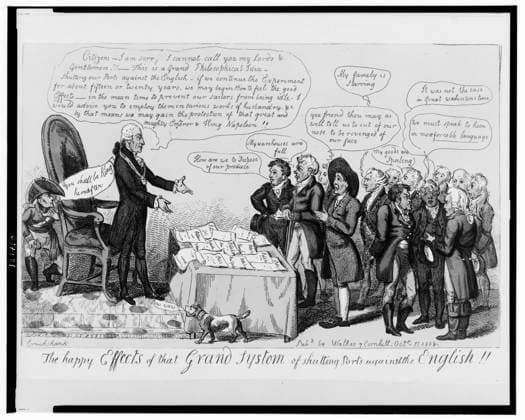 Citizens - I am sorry I cannot call you my Lords &
Gentlemen!! - This is a Grand Philosophical Idea -
shutting our Ports against the English - if we continue the Experiment
for about fifteen or twenty years, we may begin to feel the good
Effects - in the mean time to prevent our sailors from being idle - I
would advise you to employ them in various works of husbandry &c
by that means we may gain the protection of that great and
mighty Emperor & King Napoleon!!
you shall be King
hereafter
My warehouses are
full
How are we to Dispose
of our produce
My family is
Starving
you friend thou may as
well tell us to cut of our
nose to be revenged of
our face
My goods are
Spoiling
It was not the case
in Great Washintons time
We must speak to him
in more forcible language
Cruikshank
Pubd by Walker 7 Cornhill, Octr 15 1808
The happy Effects of that Grand System of shutting Ports against the English!!